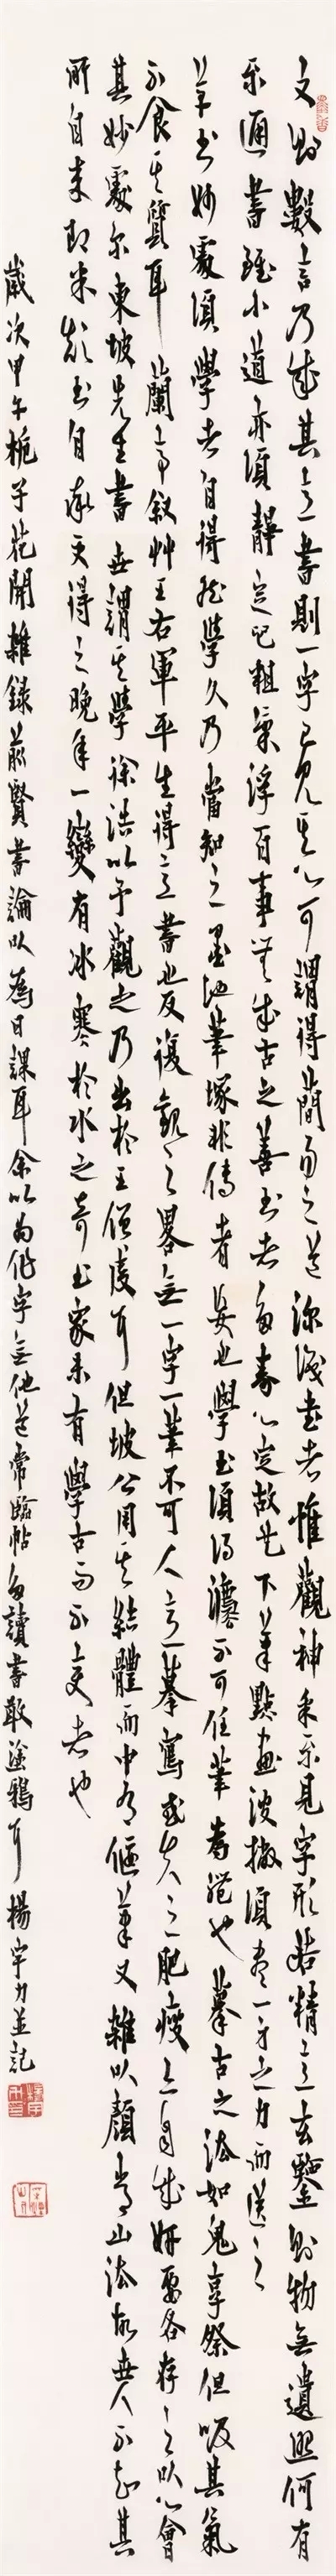 文則數言乃成其意書則一字已見其心可謂得簡易之道深識書者惟觀神采不見字形若精意玄鑒則物無遺照何有
不通書雖小道亦須靜定心粗氣浮百事無成古之善書者多壽心定故也下筆點畫波撇須盡一身之力而送之
羊書妙處須學者自得然學久乃當知之墨池筆塚非傳者妄也學書須得趣不可任筆為體也摹古之法如鬼享祭但吸其氣
不食其質耳蘭亭敘草王右軍平生得意書也反復觀之略無一字一筆不可人意摹寫或失之肥瘦亦自成妍要各存之以心會
其妙處爾東坡先生書世謂其學徐浩以予觀之乃出於王僧虔耳但坡公用其結體而中有偃筆又雜以顏常山法故世人不知其
所自來即米顛書自率更得之晚年一變有冰寒於水之奇書家未有學古而不變者也
歲次甲午梔子花開雜錄前賢書論以為日課耳余以為作字無他道常臨帖多讀書敢塗鴉耳楊宇力並記